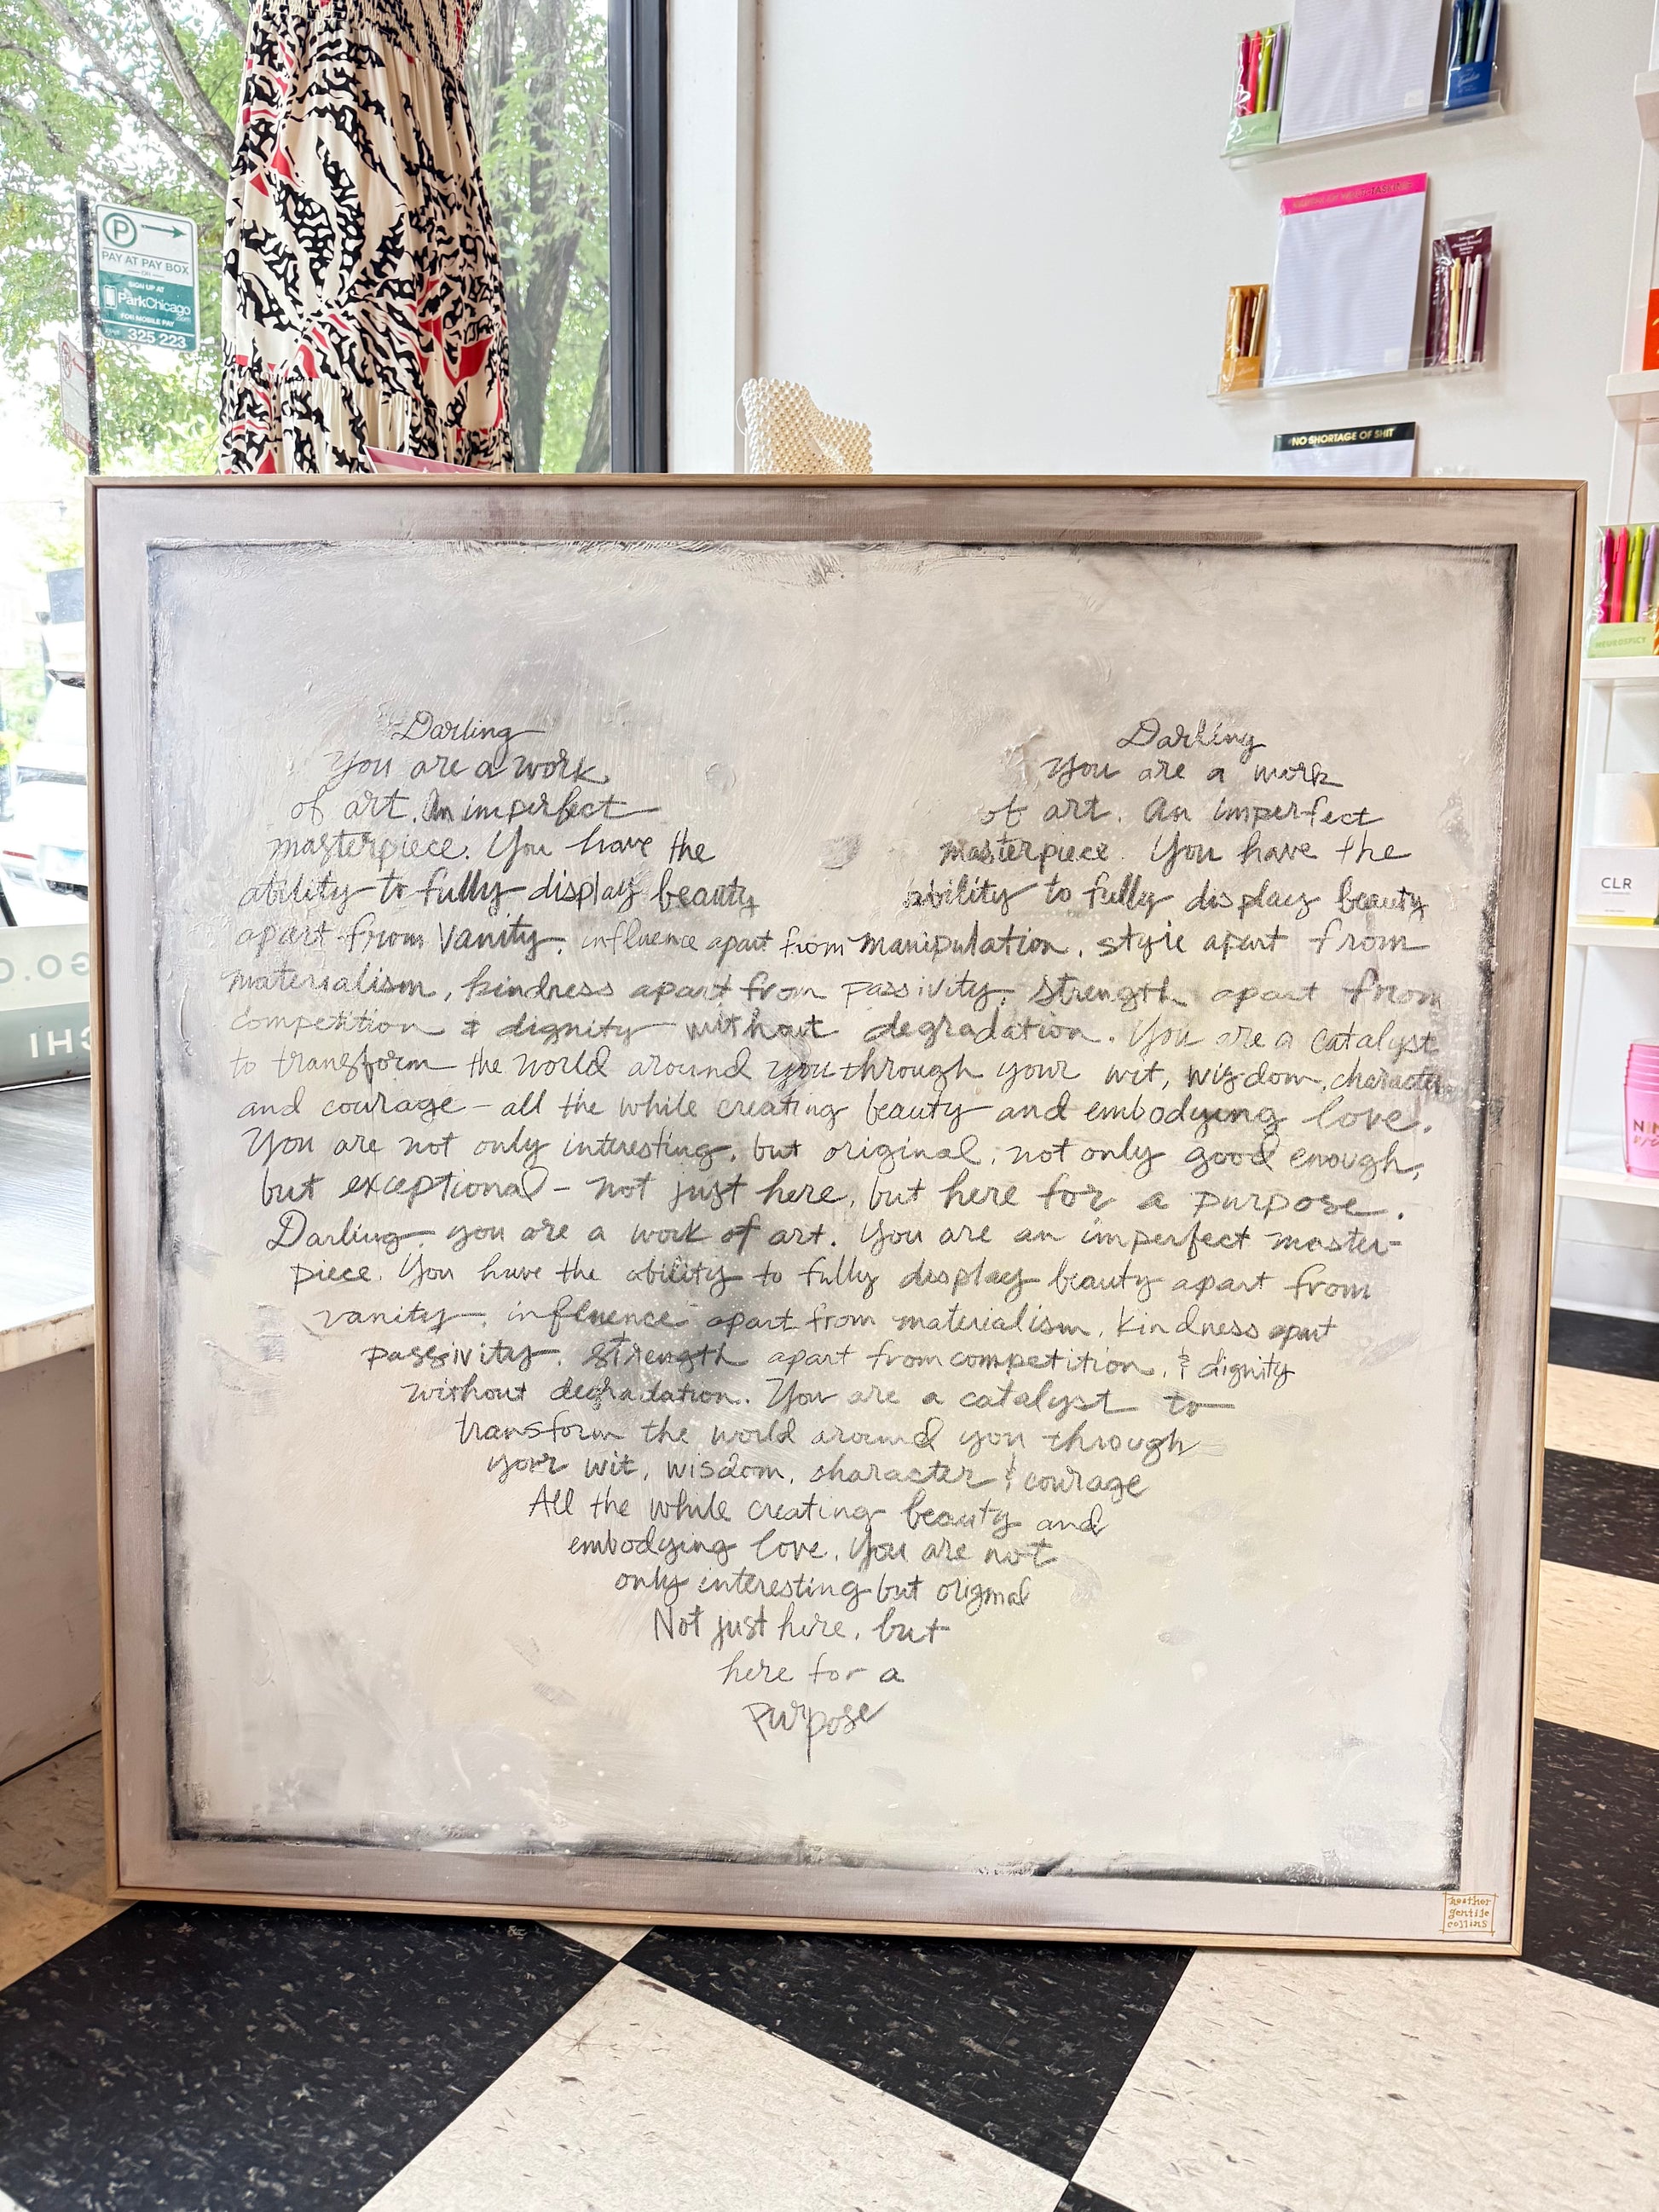 P
PAY AT PAY BOX
OR
SIGN UP AT
ParkChicago
.com
FOR MOBILE PAY
325 223
NO SHORTAGE OF SHIT
NEUROSPICY
CLR
Darling
You are a work
of art. An imperfect
masterpiece. You have the
ability to fully display beauty
Darling
You are a work
of art. An imperfect
masterpiece. You have the
ability to fully display beauty
apart from vanity, influence apart from manipulation, style apart from
materialism, kindness apart from passivity, strength apart from
competition & dignity without degradation. You are a catalyst
to transform the world around you through your wit, wisdom, character
and courage - all the while creating beauty and embodying love.
You are not only interesting, but original, not only good enough,
but exceptional - not just here, but here for a purpose.
Darling, you are a work of art. You are an imperfect master-
piece. You have the ability to fully display beauty apart from
vanity, influence apart from materialism, kindness apart
passivity, strength apart from competition, & dignity
without degradation. You are a catalyst to
transform the world around you through
your wit, wisdom, character & courage
All the while creating beauty and
embodying love. You are not
only interesting but original
Not just here, but
here for a
purpose
heather
gentile
collins